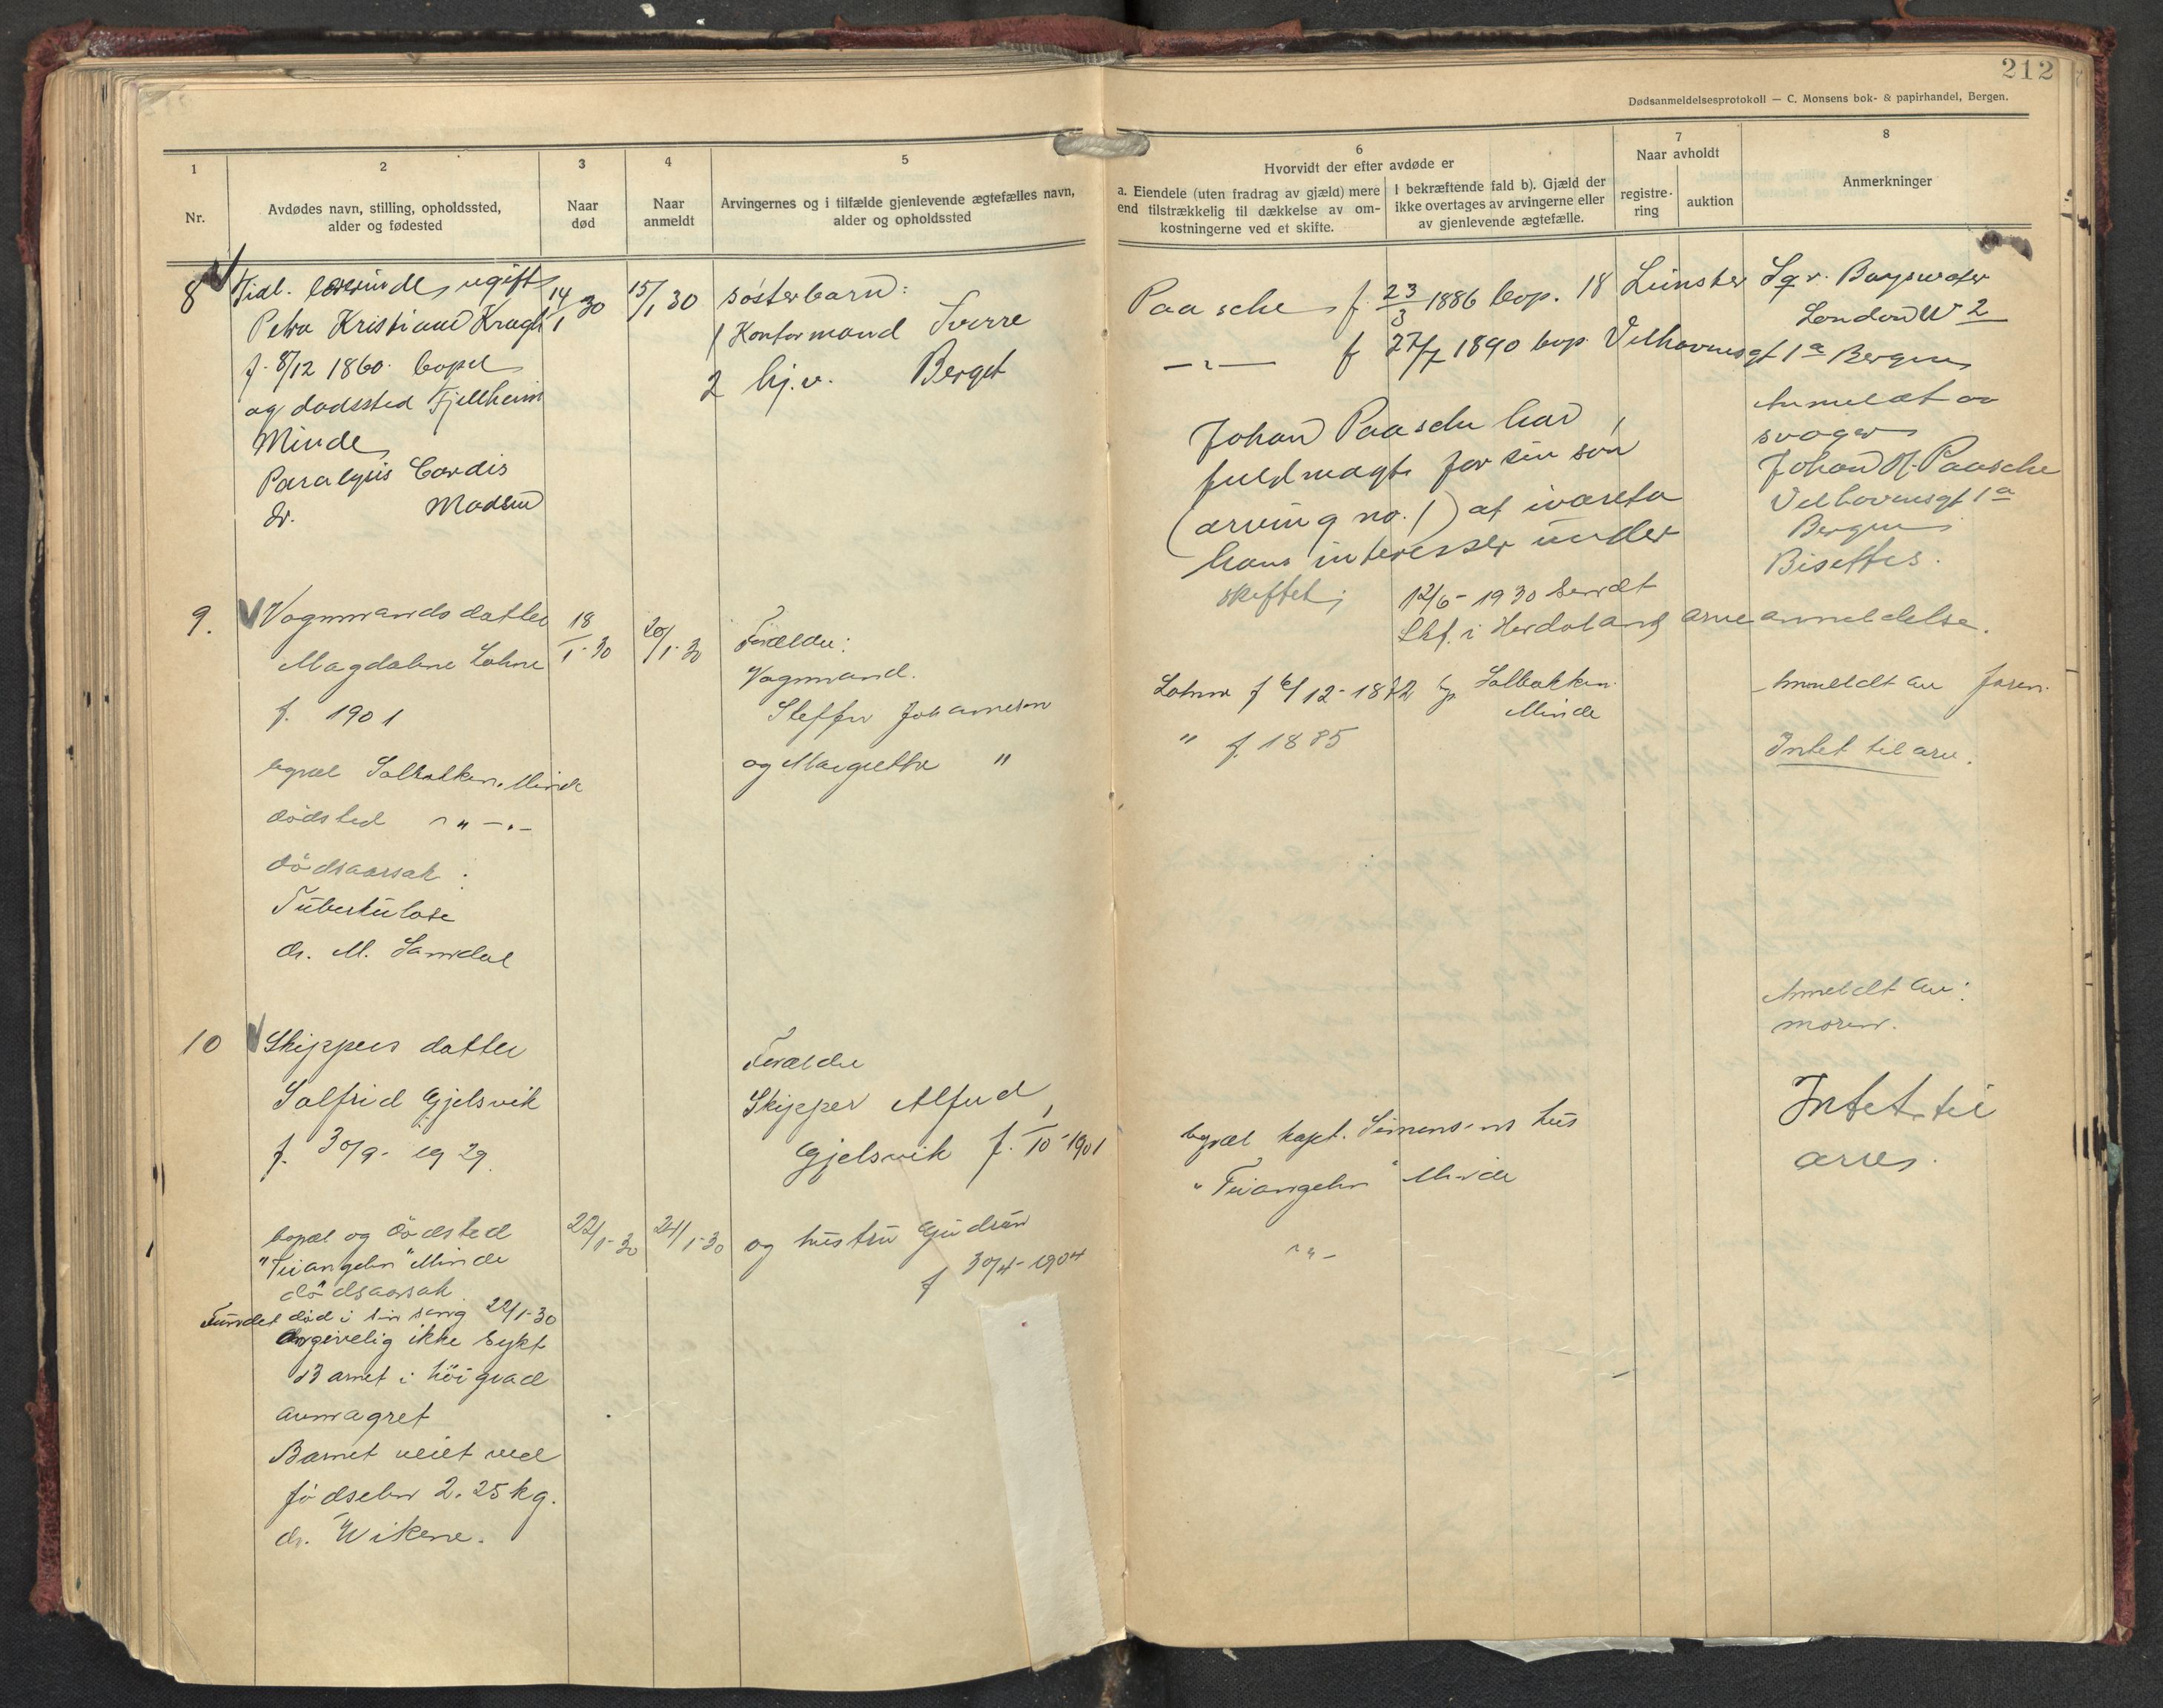 212
Dødsanmeldelsesprotokoll — C. Monsens bok- & papirhandel, Bergen.
1
2
3
4
5
6
7
8
Nr.
Avdødes navn, stilling, opholdssted,
alder og fødested
Naar
død
Naar
anmeldt
Arvingernes og i tilfælde gjenlevende ægtefælles navn,
alder og opholdssted
Hvorvidt der efter avdøde er
a. Eiendele (uten fradrag av gjæld) mere
end tilstrækkelig til dækkelse av om-
kostningerne ved et skifte.
I bekræftende fald b). Gjæld der
ikke overtages av arvingerne eller
av gjenlevende ægtefælle.
Naar avholdt
registre-
ring
auktion
Anmerkninger
8
Tidl. lærerinde, ugift
Petra Kristiane Kragh
f. 8/12 1860. bopel
og dødssted Fjellheim
Minde
Paralysis Cordis
dr. Madsen
14/1 30
15/1 30
søsterbarn:
1 Kontormand Sverre
2 hj.v. Berget
Paasche f. 23/3 1886 bop. 18 Leinster Sqr. Bayswater
London W 2
f 27/7 1890 bop. Velhavensgt 1a Bergen
Johan Paasche har
fuldmagt for sin søn
(arving no. 1) at ivareta
hans interesser under
skiftet;
12/6 - 1930 sendt
Skf. i Hordaland arveanmeldelse.
Anmeldt av
svoger
Johan Paasche
Velhavensgt 1a
Bergen
Bisettes.
9.
Vognmands datter
Magdalene Lohne
f. 1901
bopæl Solbakken. Minde
dödsted - " - . -
dödsaarsak:
Tuberkulose
dr. M. Samdal
18/1-30
20/1-30
Forældre:
Vognmand.
Steffen Johannesen
og Margrethe "
Lohne f 6/12-1872 bp Solbakken.
Minde
" f. 1885
Anmeldt av faren.
Intet til arv.
10
Skippers datter
Solfrid Gjelsvik
f. 30/9 - 1929
bopæl og dödsted
"Triangelen" Minde
dödsaarsak
Fundet död i sin seng 22/1-30
Angivelig ikke sykt
Barnet i höi grad
avmagret
Barnet veiet ved
födselen 2.25 kg.
dr. Wikene.
22/1-30
24/1-30
Forældre
Skipper Alfred
Gjelsvik f. 1/10-1901
og hustru Gudrun
f 30/4-1904
bopæl kapt. Simensens hus
"Triangelen" Minde
- " -
Anmeldt av:
moren.
Intet til
arv.